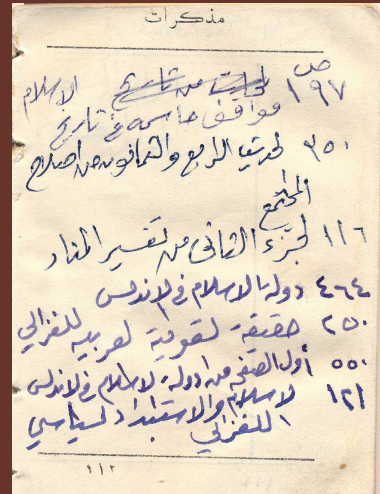 مذكرات
ص
١٩٧ مواقف حاسمة في تاريخ الاسلام
٣٥٠ الحديث الرابع والثمانون من اصلاح
المجتمع
١١٦ الجزء الثاني من تفسير المنار
٤٦٤ دولة الاسلام في الاندلس
٢٥٠ حقيقة القومية العربية للغزالي
٥٥٠ أول الصفحة من دولة الاسلام في الاندلس
١٢١ الاسلام والاستبداد السياسي
للغزالي
١١٢